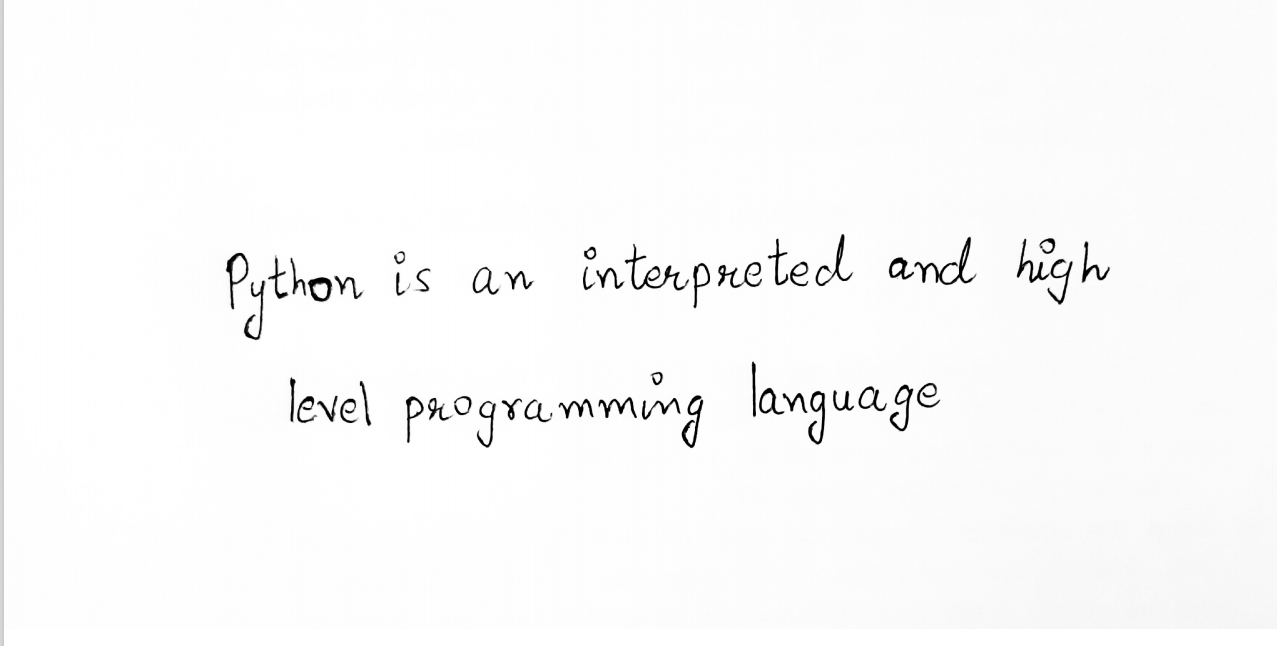 Python is an interpreted and high
level programming language